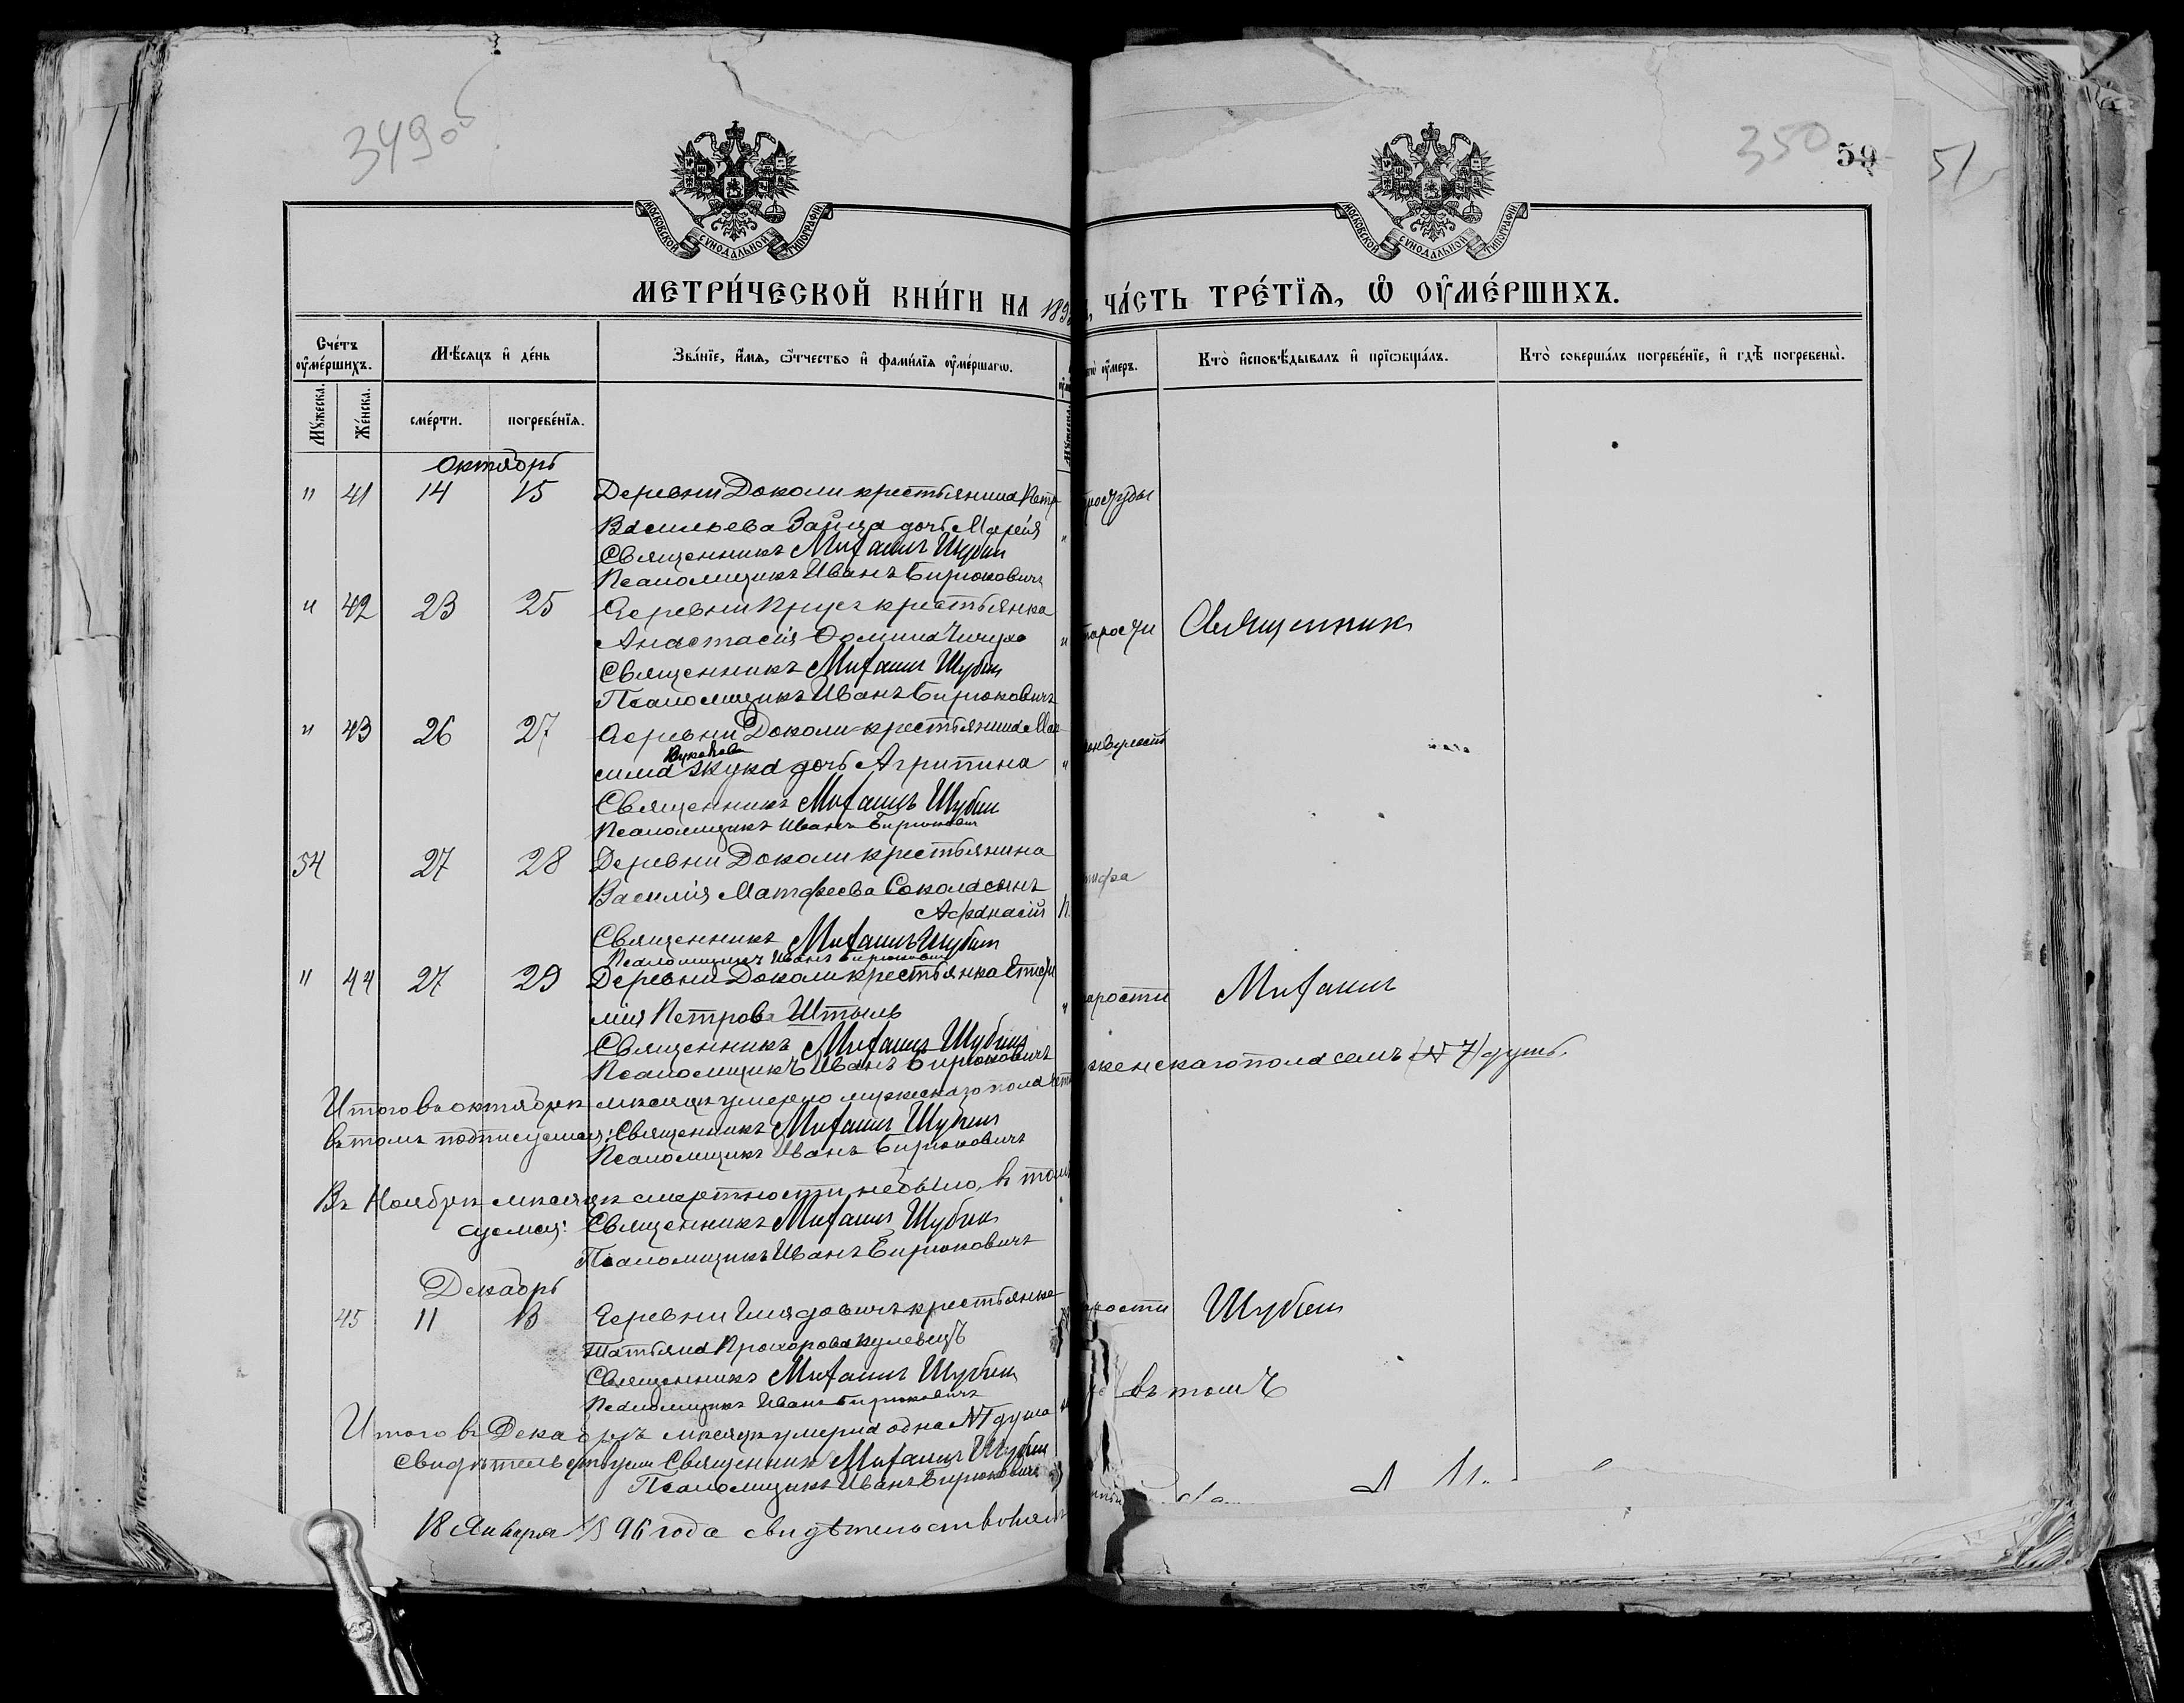 349 об
350
59
51
МОСКОВСКОЙ СУНОДАЛЬНОЙ ТИПОГРАФІИ
МОСКОВСКОЙ СУНОДАЛЬНОЙ ТИПОГРАФІИ
МЕТРИ́ЧЕСКОЙ КНИ́ГИ НА 189
ЧА́СТЬ ТРЕ́ТЇѦ, Ѽ ОУ҆МЕ́РШИХЪ.
Сче́тъ оу҆ме́ршихъ.
Мѣ́сяцъ и҆ де́нь
Зва́нїе, и҆́мя, ѻ҆́тчество и҆ фами́лїя оу҆ме́ршагѡ.
оу҆́меръ.
Кто̀ и҆сповѣ́дывалъ и҆ прїѡбща́лъ.
Кто̀ соверша́лъ погребе́нїе, и҆ гдѣ̀ погребены̀.
Мꙋ́жеска.
Же́нска.
сме́рти.
погребе́нїя.
Октябрь
" 41 14 15 Деревни Доколи крестьянина Петр
Васильева Зайца дочь Марія
Священникъ Михаилъ Шубин
Псаломщикъ Иванъ Бирюковичъ
" 42 23 25 Деревни крестьянка
Анастасія Фомина старости Священник
Священникъ Михаилъ Шубин
Псаломщикъ Иванъ Бирюковичъ
" 43 26 27 Деревни Доколи крестьянина Мак
сима Жука дочь Агрипина
Священникъ Михаилъ Шубин
Псаломщикъ Иванъ Бирюкович
54 27 28 Деревни Доколи крестьянина тифа
Василія Матфеева Сокола сынъ
Афанасій
Священникъ Михаилъ Шубин
Псаломщикъ Иванъ Бирюкович
" 44 27 29 Деревни Доколи крестьянка Ефи
мія Петрова Штыль арости Михаилъ
Священникъ Михаилъ Шубин
Псаломщикъ Иванъ Бирюковичъ
Итого въ октябрѣ мѣсяцѣ умерло мужескаго пола женскаго пола семь (№ 7) душъ.
въ томъ подписуемся: Священникъ Михаилъ Шубин
Псаломщикъ Иванъ Бирюковичъ
Въ Ноябрѣ мѣсяцѣ смертности небыло, в том
суемся: Священникъ Михаилъ Шубин
Псаломщикъ Иванъ Бирюковичъ
Декабрь
45 11 13 Деревни крестьянка арости Шубин
Татьяна Прохорова Кулевецъ
Священникъ Михаилъ Шубин
Псаломщикъ Иванъ Бирюковичъ
Итого въ Декабрѣ мѣсяцѣ умерла одна №1 душа въ томъ
Свидѣтельствуем Священник Михаилъ Шубин
Псаломщикъ Иванъ Бирюкович
18 Января 1896 года свидѣтельствовалъ